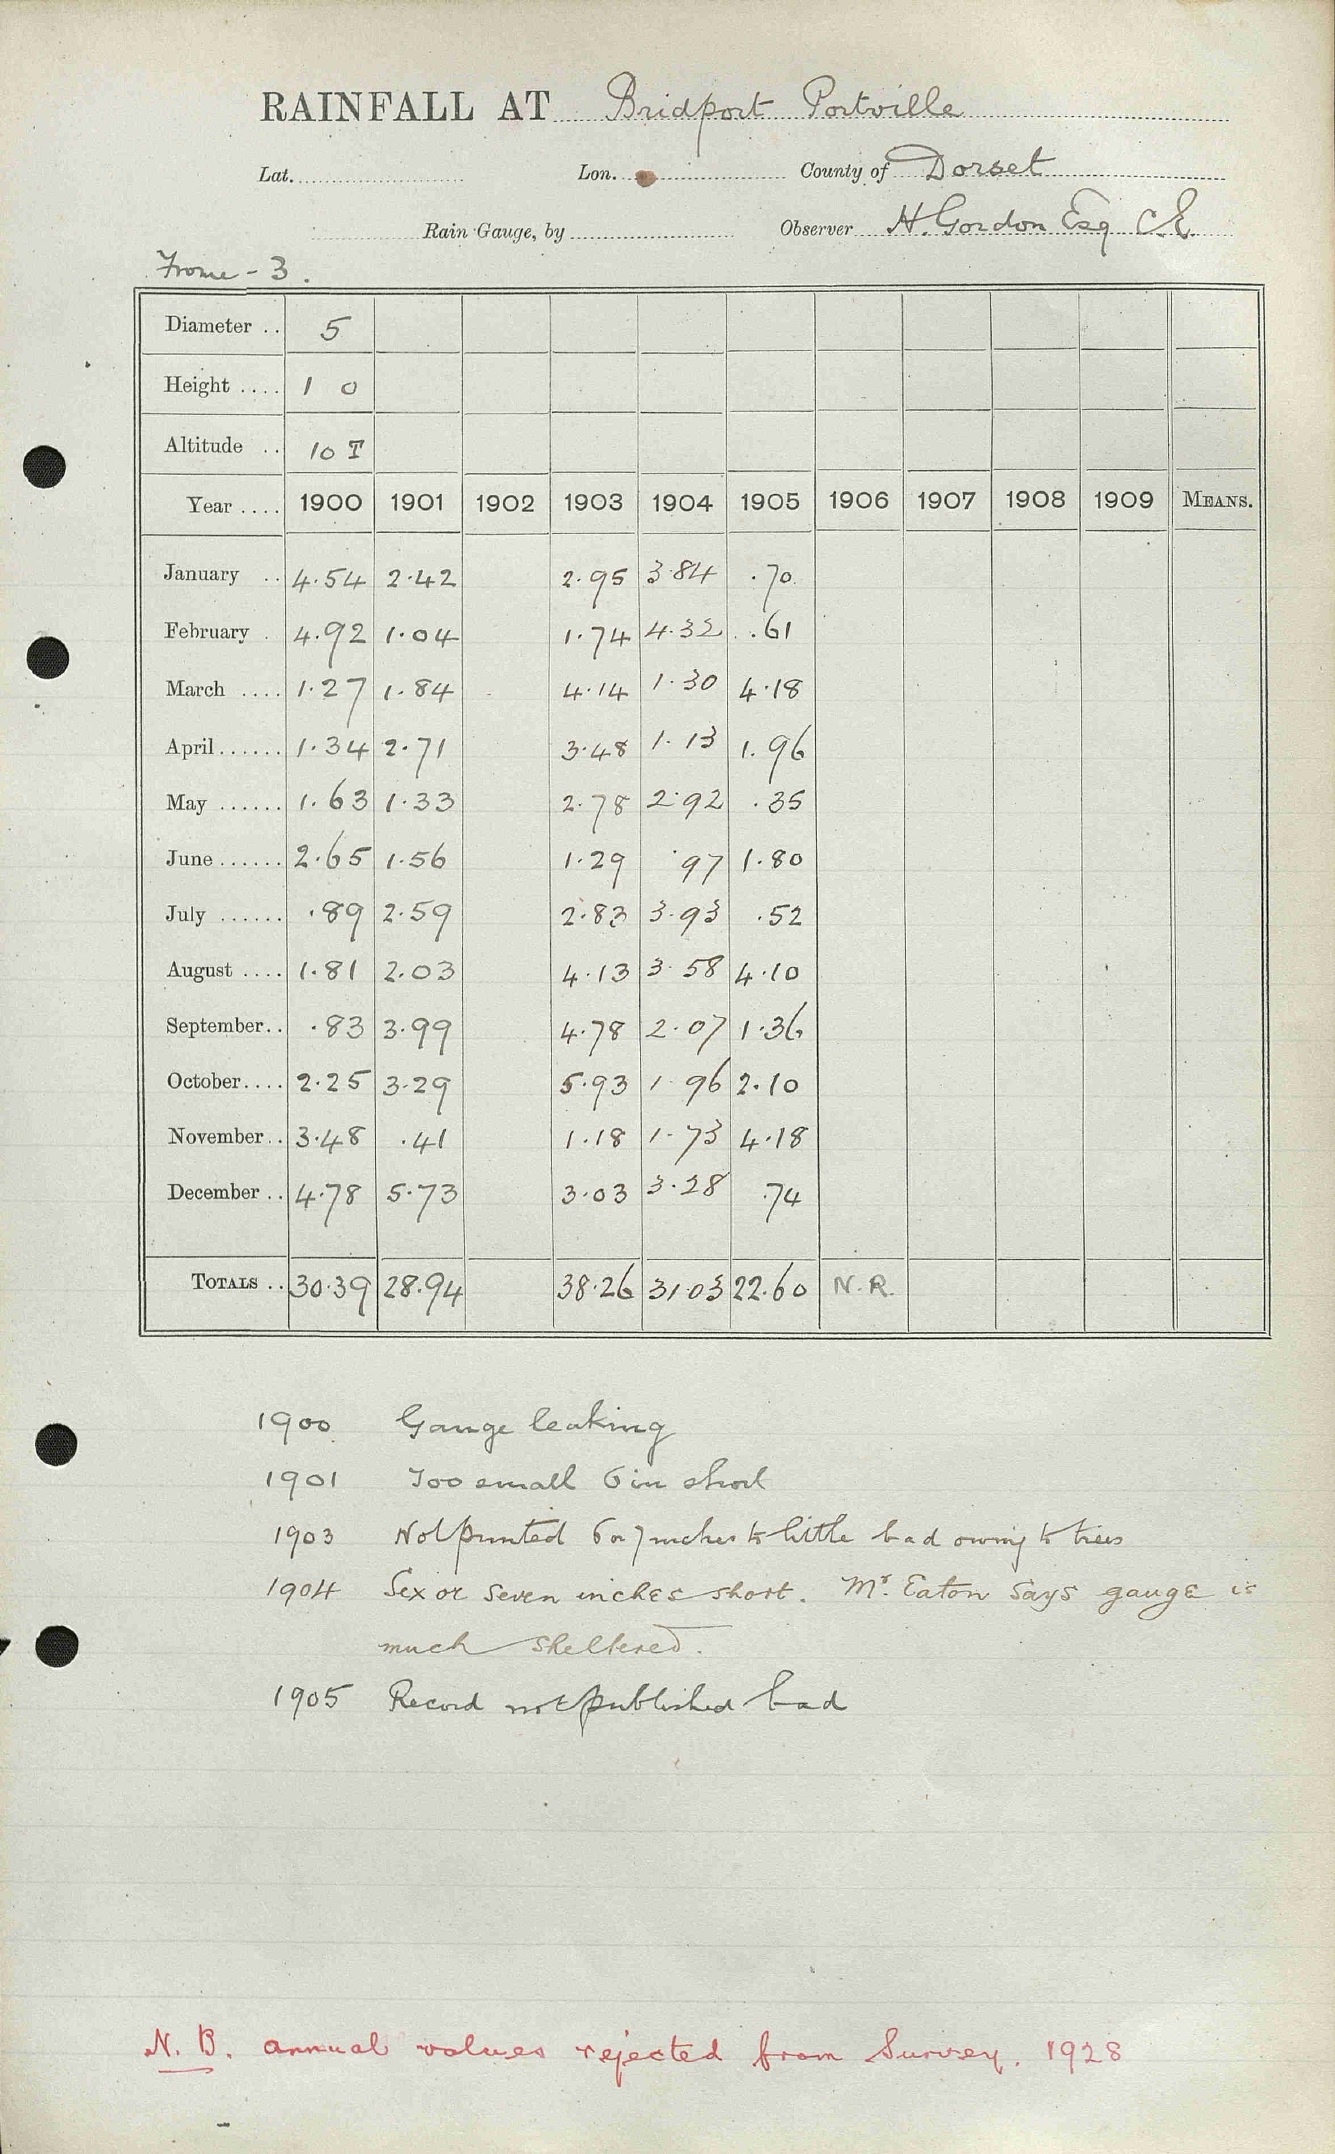 RAINFALL AT Bridport Portville
Lat. Lon. County of Dorset
Rain Gauge, by Observer H. Gordon Esq C.E.
Frome - 3.
Diameter .. 5
Height .... 1 0
Altitude .. 10 T
Year .... 1900 1901 1902 1903 1904 1905 1906 1907 1908 1909 MEANS.
January .. 4.54 2.42 2.95 3.84 .70
February . 4.92 1.04 1.74 4.32 .61
March .... 1.27 1.84 4.14 1.30 4.18
April ...... 1.34 2.71 3.48 1.13 1.96
May ...... 1.63 1.33 2.78 2.92 .35
June ...... 2.65 1.56 1.29 .97 1.80
July ...... .89 2.59 2.83 3.93 .52
August .... 1.81 2.03 4.13 3.58 4.10
September.. .83 3.99 4.78 2.07 1.36
October.... 2.25 3.29 5.93 1.96 2.10
November.. 3.48 .41 1.18 1.73 4.18
December .. 4.78 5.73 3.03 3.28 .74
TOTALS .. 30.39 28.94 38.26 31.03 22.60 N.R.
1900 Gauge leaking
1901 Too small 6 in short
1903 Not printed 6 or 7 inches to little bad owing to trees
1904 Six or seven inches short. Mr. Eaton says gauge is
much sheltered.
1905 Record not published bad
N. B. annual values rejected from Survey. 1928